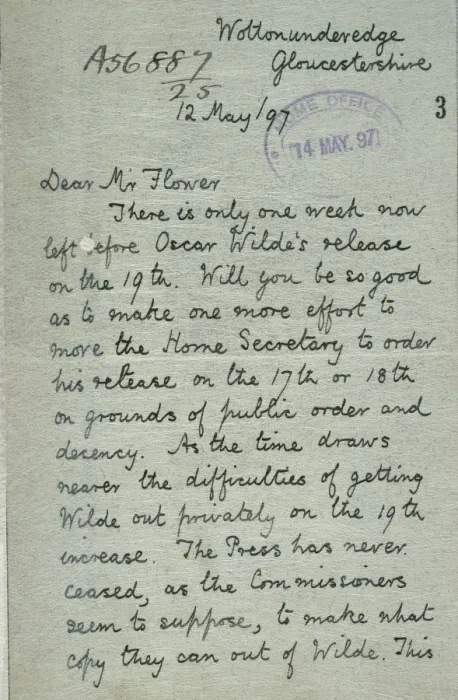 Wottonunderedge
Gloucestershire
A56887
25
12 May/97
HOME OFFICE
14 MAY. 97
3
Dear Mr Flower
There is only one week now
left before Oscar Wilde's release
on the 19th. Will you be so good
as to make one more effort to
move the Home Secretary to order
his release on the 17th or 18th
on grounds of public order and
decency. As the time draws
nearer the difficulties of getting
Wilde out privately on the 19th
increase. The Press has never
ceased, as the Commissioners
seem to suppose, to make what
copy they can out of Wilde. This